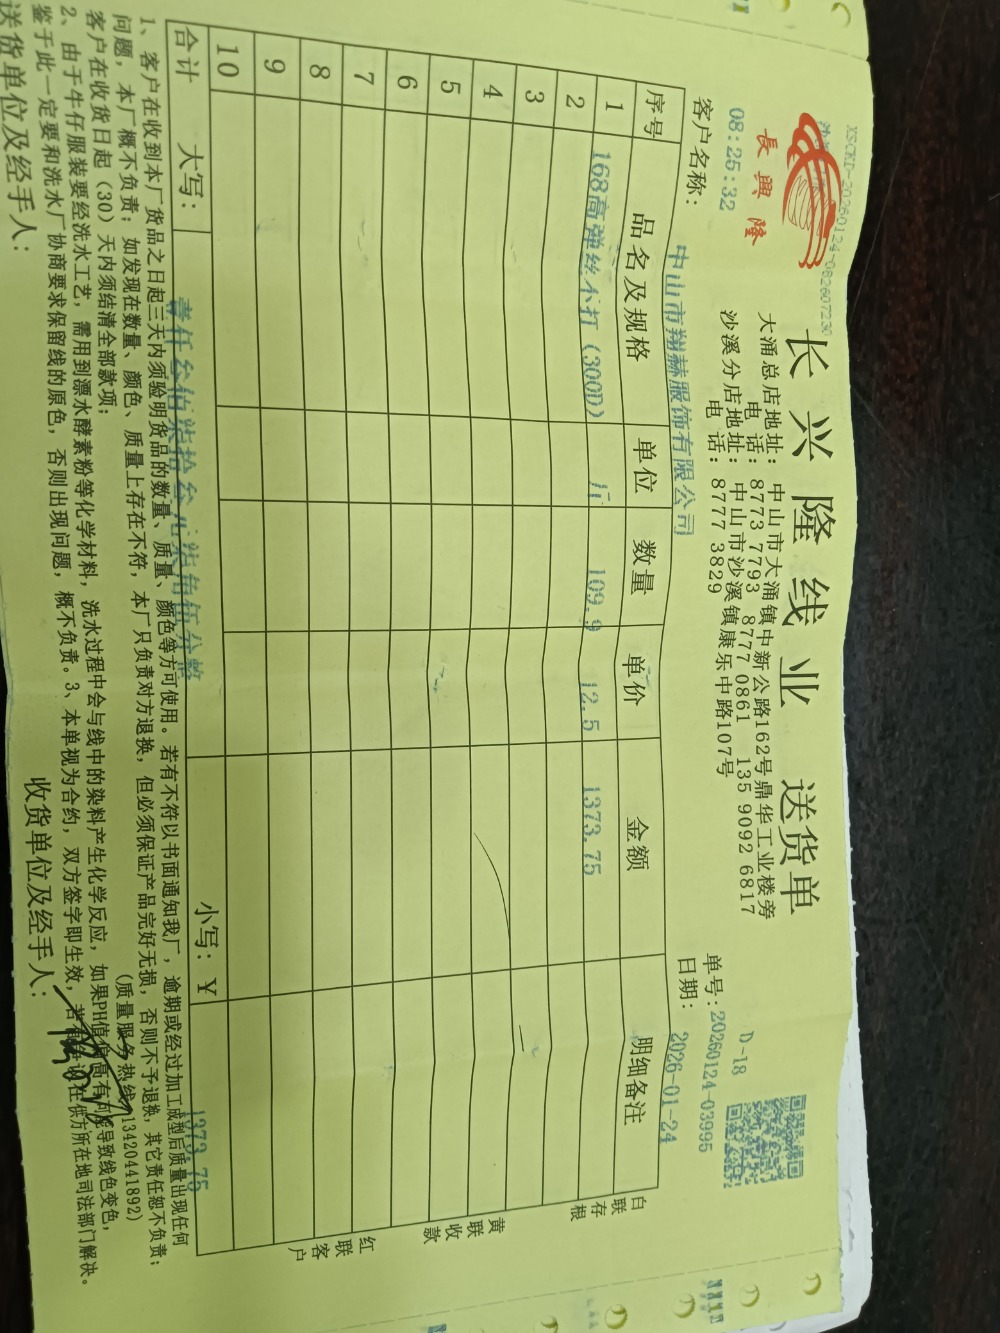 XSCKD-20260124-082607230
長興隆
长兴隆线业 送货单
大涌总店地址：中山市大涌镇中新公路162号鼎华工业楼旁
电 话：8773 7793 8777 0861 135 9092 6817
沙溪分店地址：中山市沙溪镇康乐中路107号
电 话：8777 3829
D-18
08:25:32
单号：20260124-03995
客户名称：中山市翔赫服饰有限公司
日期：2026-01-24
序号 品名及规格 单位 数量 单价 金额 明细备注
1 168高弹丝不打（300D） 109.9 12.5 1373.75
2
3
4
5
6
7
8
9
10
合计 大写：壹仟叁佰柒拾叁元柒角伍分整 小写：￥ 1373.75
白联存根
黄联收款
红联客户
1、客户在收到本厂货品之日起三天内须验明货品的数量、质量、颜色等方可使用。若有不符以书面通知我厂，逾期或经过加工成型后质量出现任何
问题，本厂概不负责；如发现在数量、颜色、质量上存在不符，本厂只负责对方退换，但必须保证产品完好无损，否则不予退换，其它责任恕不负责；
客户在收货日起（30）天内须结清全部款项；
（质量服务热线：13420441892）
2、由于牛仔服装要经洗水工艺，需用到漂水酵素粉等化学材料，洗水过程中会与线中的染料产生化学反应，如果PH值偏高有可能导致线色变色，
鉴于此一定要和洗水厂协商要求保留线的原色，否则出现问题，概不负责。3、本单视为合约，双方签字即生效，若有争议在供方所在地司法部门解决。
送货单位及经手人：
收货单位及经手人：